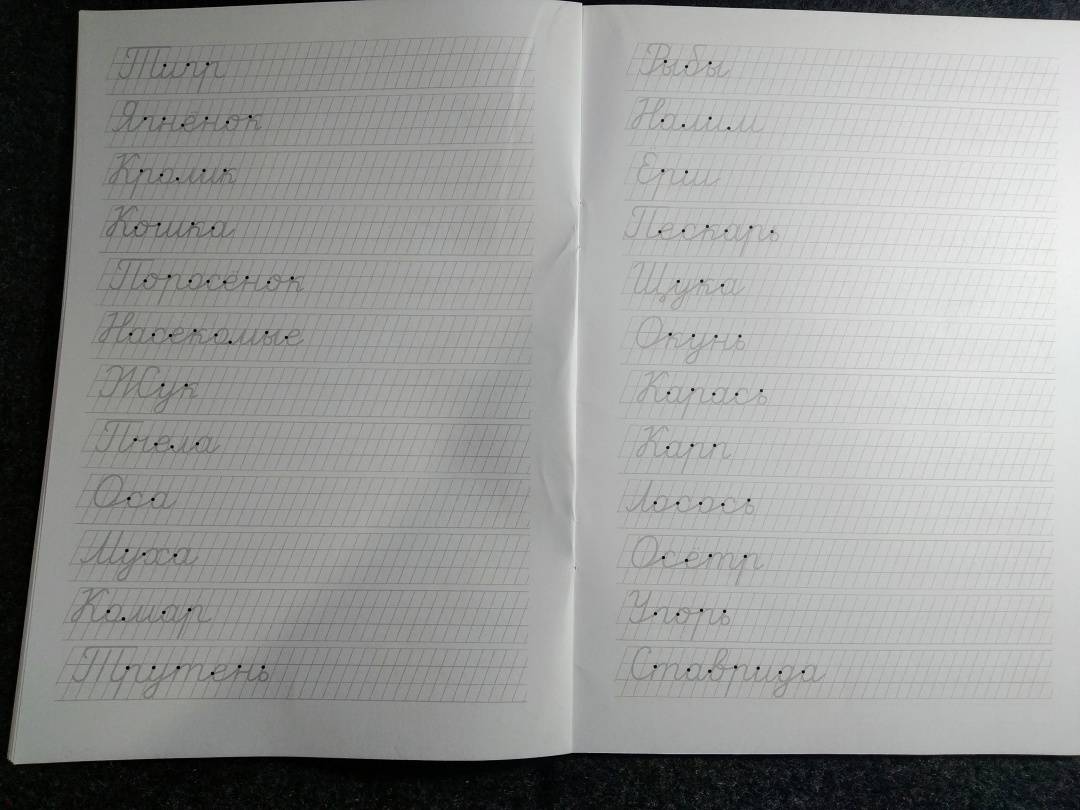 Тигр
Ягнёнок
Кролик
Кошка
Поросёнок
Насекомые
Жук
Пчела
Оса
Муха
Комар
Трутень
Рыбы
Налим
Ерш
Пескарь
Щука
Окунь
Карась
Карп
Лосось
Осётр
Угорь
Ставрида